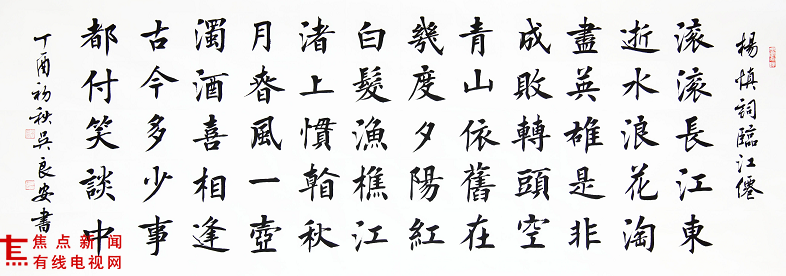 楊慎詞臨江僊
滾滾長江東
逝水浪花淘
盡英雄是非
成敗轉頭空
青山依舊在
幾度夕陽紅
白髮漁樵江
渚上慣看秋
月春風一壺
濁酒喜相逢
古今多少事
都付笑談中
丁酉初秋吳良安書
焦点新闻
有线电视网